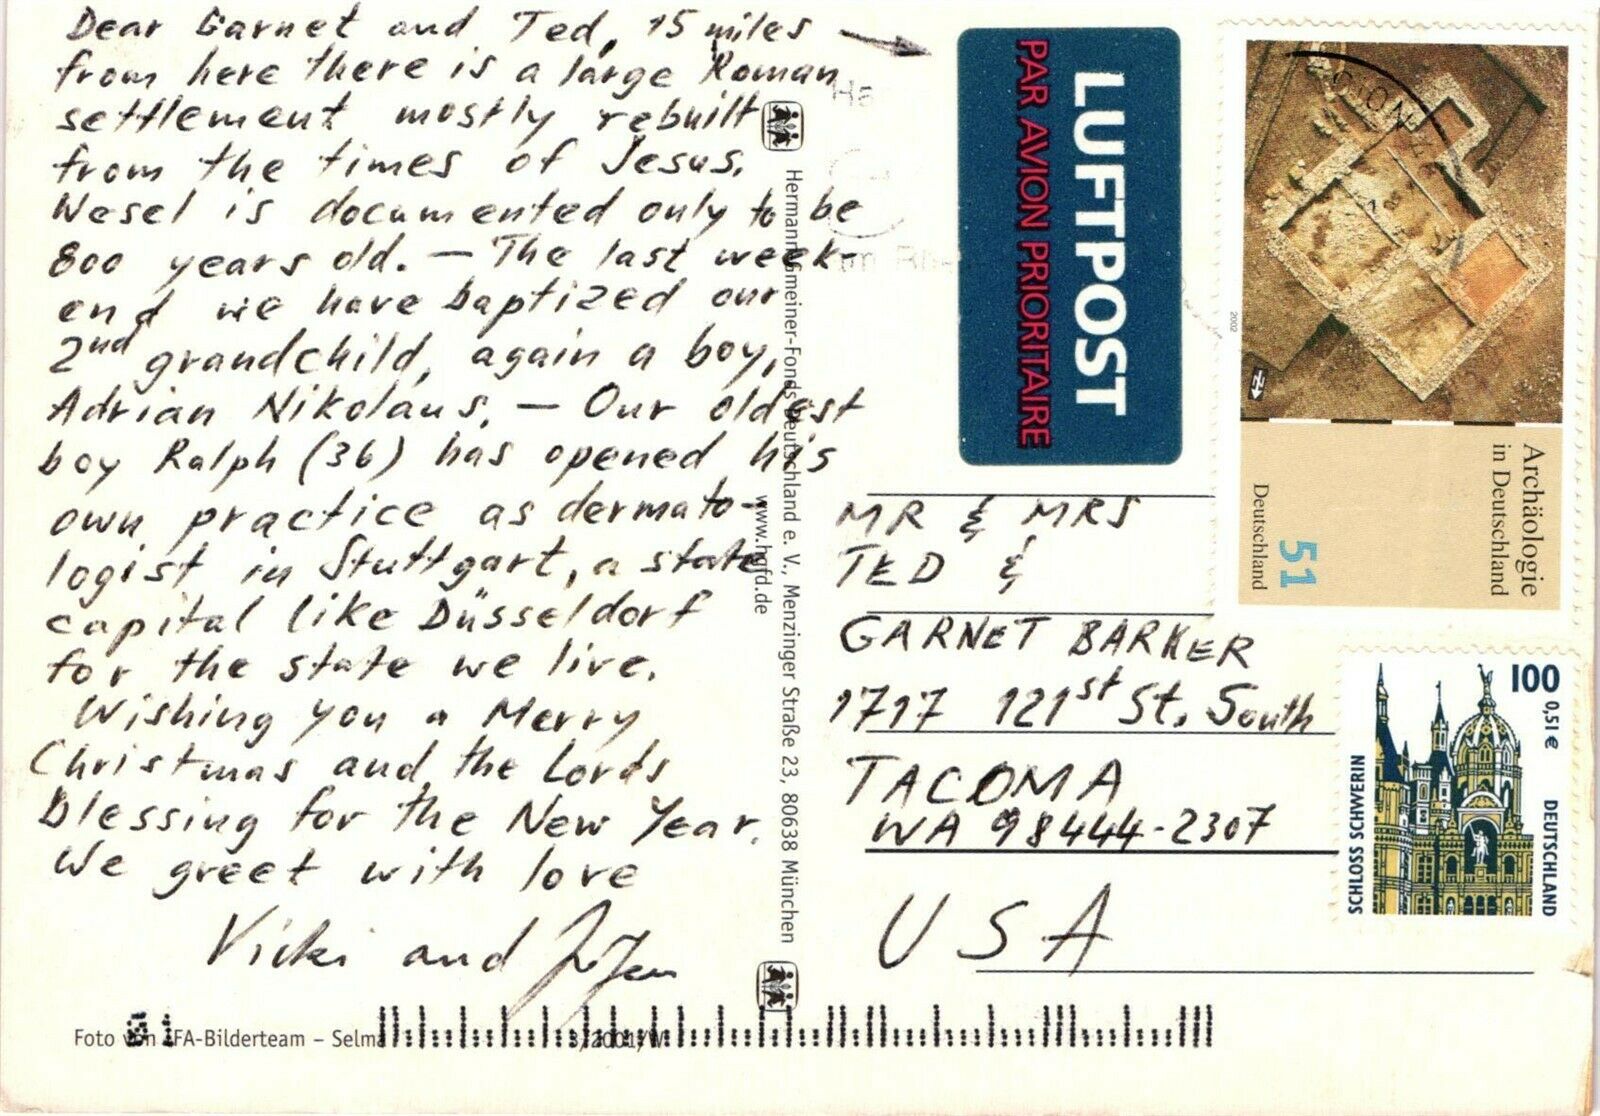 Dear Garnet and Ted, 15 miles
from here there is a large Roman
settlement mostly rebuilt
from the times of Jesus.
Wesel is documented only to be
800 years old. — The last week-
end we have baptized our
2nd grandchild, again a boy,
Adrian Nikolaus. — Our oldest
boy Ralph (36) has opened his
own practice as dermato-
logist in Stuttgart, a state
capital like Düsseldorf
for the state we live.
Wishing you a Merry
Christmas and the Lords
Blessing for the New Year.
We greet with love
Vicki and
Foto von IFA-Bilderteam – Selma 3/2001/W
Hermann-Gmeiner-Fonds Deutschland e. V., Menzinger Straße 23, 80638 München
www.hgfd.de
LUFTPOST
PAR AVION PRIORITAIRE
2002
Archäologie
in Deutschland
51
Deutschland
MR & MRS
TED &
GARNET BARKER
1717 121st St. South
TACOMA
WA 98444-2307
USA
100
0,51 €
SCHLOSS SCHWERIN
DEUTSCHLAND